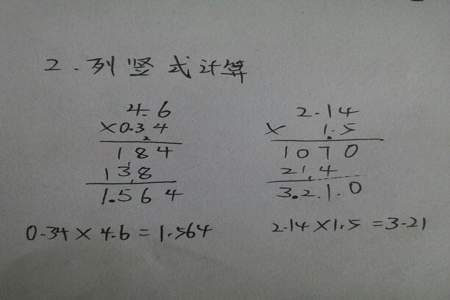 2.列竖式计算
4.6
×0.34
184
138
1.564
0.34×4.6=1.564
2.14
× 1.5
1070
214
3.2.1.0
2.14×1.5=3.21